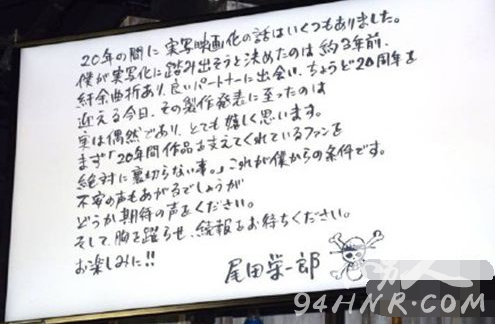 20年の間に実写映画化の話はいくつもありました。
僕が実写化に踏み出そうと決めたのは約3年前、
紆余曲折あり、良いパートナーに出会い、ちょうど20周年を
迎える今日、その製作発表に至ったのは
実は偶然であり、とても嬉しく思います。
まず「20年間作品を支えてくれているファンを
絶対に裏切らない事。」これが僕からの条件です。
不安の声もあがるでしょうが
どうか期待の声をください。
そして、胸を躍らせ、続報をお待ちください。
お楽しみに!!
尾田栄一郎
94HNR.COM